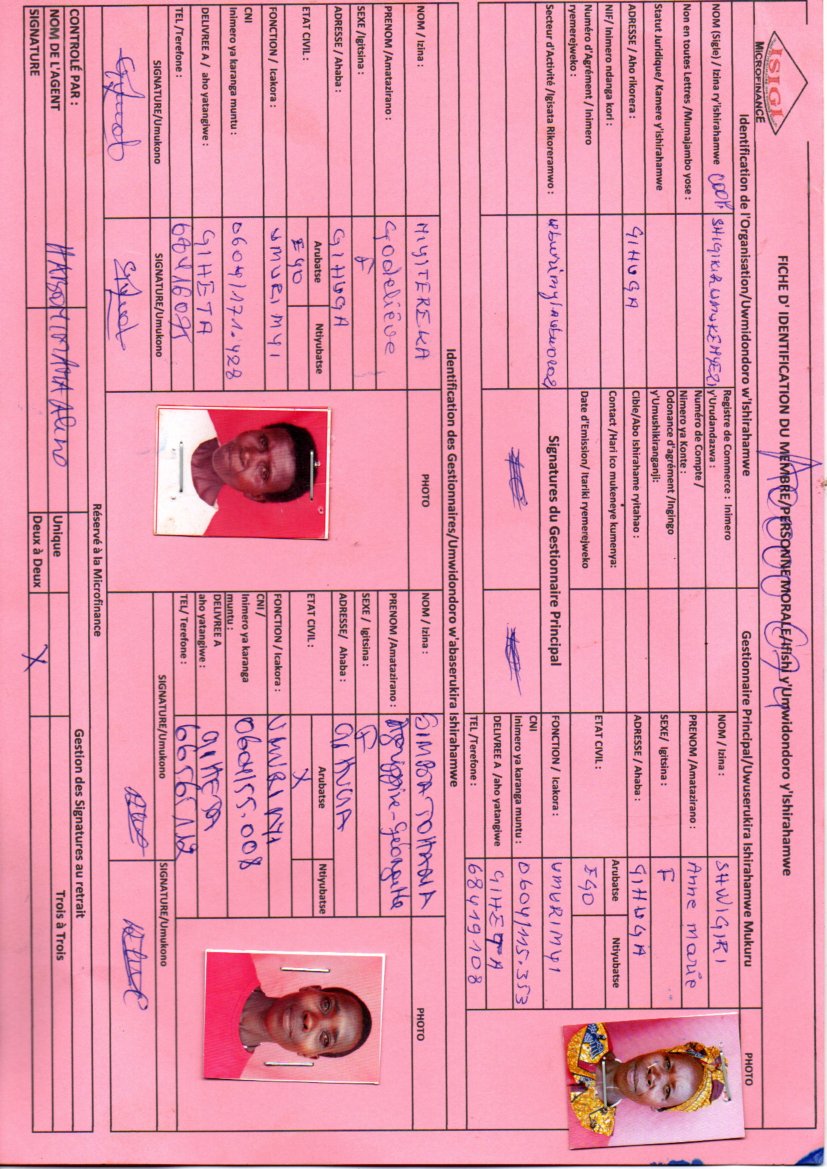 ISIGI
MICROFINANCE
FICHE D' IDENTIFICATION DU MEMBRE/PERSONNE MORALE/Ifishi y'Umwidondoro y'Ishirahamwe
Identification de l'Organisation/Uwmidondoro w'Ishirahamwe
NOM (Sigle) / Izina ry'ishirahamwe COOP. SHIGIKIRUMUKENYEZI
Non en toutes Lettres /Mumajambo yose :
Statut Juridique/ Kamere y'ishirahamwe
ADRESSE / Aho rikorera : GIHUGA
NIF/ Inimero ndanga kori :
Numéro d'Agrément / Inimero
ryemerejweko :
Secteur d'Activité /Igisata Rikoreramwo :
Registre de Commerce : Inimero
y'Urudandazwa :
Numéro de Compte /
Nimero ya Konte :
Odonance d'agrément /Ingingo
y'Umushikiranganji:
Cible/Abo Ishirahame ryitahao :
Contact /Hari ico mukeneye kumenya:
Date d'Emission/ Itariki ryemerejweko
Signatures du Gestionnaire Principal
Gestionnaire Principal/Uwuserukira Ishirahamwe Mukuru
PHOTO
NOM / Izina : SHWIGIRI
PRENOM /Amatazirano : Anne Marie
SEXE/ Igitsina : F
ADRESSE / Ahaba : GIHUGA
ETAT CIVIL : Arubatse Ntiyubatse
EGO
FONCTION / Icakora : UMURIMYI
CNI
Inimero ya karanga muntu : 0604/115.353
DELIVREE A /aho yatangiwe GIHETA
TEL /Terefone : 68419108
Identification des Gestionnaires/Umwidondoro w'abaserukira Ishirahamwe
NOM / Izina : NIYITEREKA
PHOTO
PRENOM /Amatazirano : Godeliève
SEXE /Igitsina : F
ADRESSE / Ahaba : GIHUGA
ETAT CIVIL : Arubatse Ntiyubatse
EGO
FONCTION / Icakora : UMURIMYI
CNI
Inimero ya karanga muntu : 0604/171.428
DELIVREE A / aho yatangiwe : GIHETA
TEL /Terefone :
SIGNATURE/Umukono SIGNATURE/Umukono
NOM / Izina :
PHOTO
PRENOM /Amatazirano :
SEXE / Igitsina : F
ADRESSE/ Ahaba : GIHUGA
ETAT CIVIL : Arubatse Ntiyubatse
X
FONCTION / Icakora : UMURIMYI
CNI /
Inimero ya karanga
muntu : 0604/155.008
DELIVREE A
aho yatangiwe : GIHETA
TEL/ Terefone :
SIGNATURE/Umukono SIGNATURE/Umukono
Réservé à la Microfinance
CONTROLÉ PAR :
NOM DE L'AGENT
SIGNATURE
Gestion des Signatures au retrait
Unique
Deux à Deux X
Trois à Trois